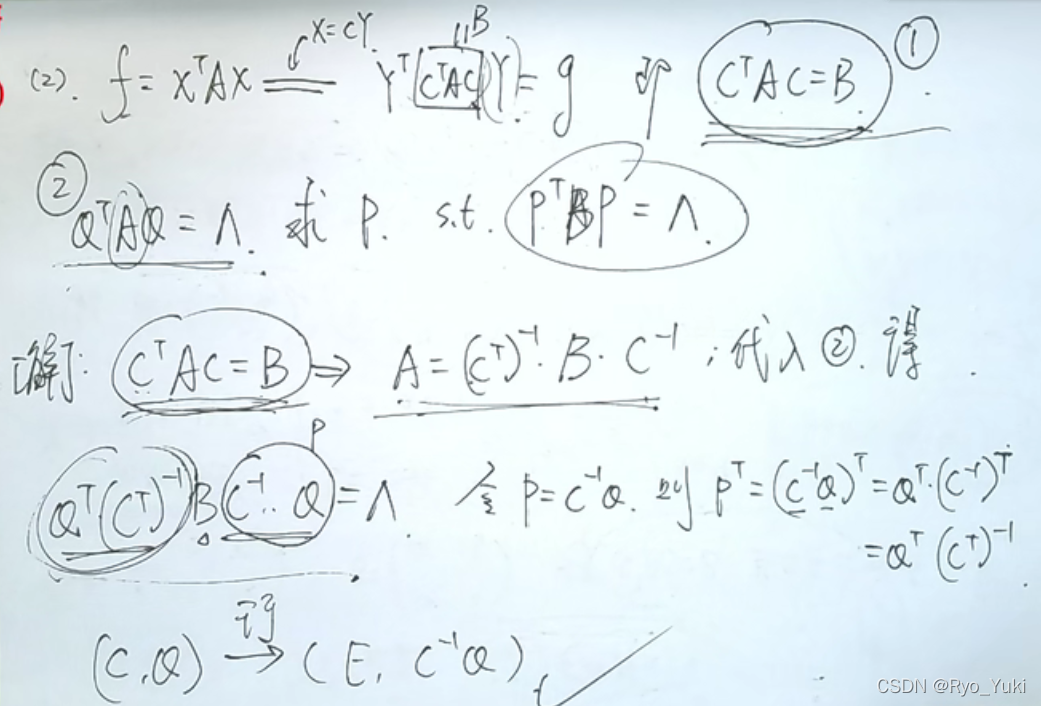 (2). f = XᵀAX ══ X=CY. Yᵀ(CᵀAC)Y = g 即 CᵀAC=B. ①
‖B
② QᵀAQ = Λ. 求 P. s.t. PᵀBP = Λ.
解: CᵀAC=B ⇒ A = (Cᵀ)⁻¹·B·C⁻¹; 代入②. 得
Qᵀ(Cᵀ)⁻¹BC⁻¹·Q = Λ. 令 P = C⁻¹Q. 则 Pᵀ = (C⁻¹Q)ᵀ = Qᵀ·(C⁻¹)ᵀ
P
= Qᵀ(Cᵀ)⁻¹
(C, Q) 行→ (E, C⁻¹Q)
CSDN @Ryo_Yuki